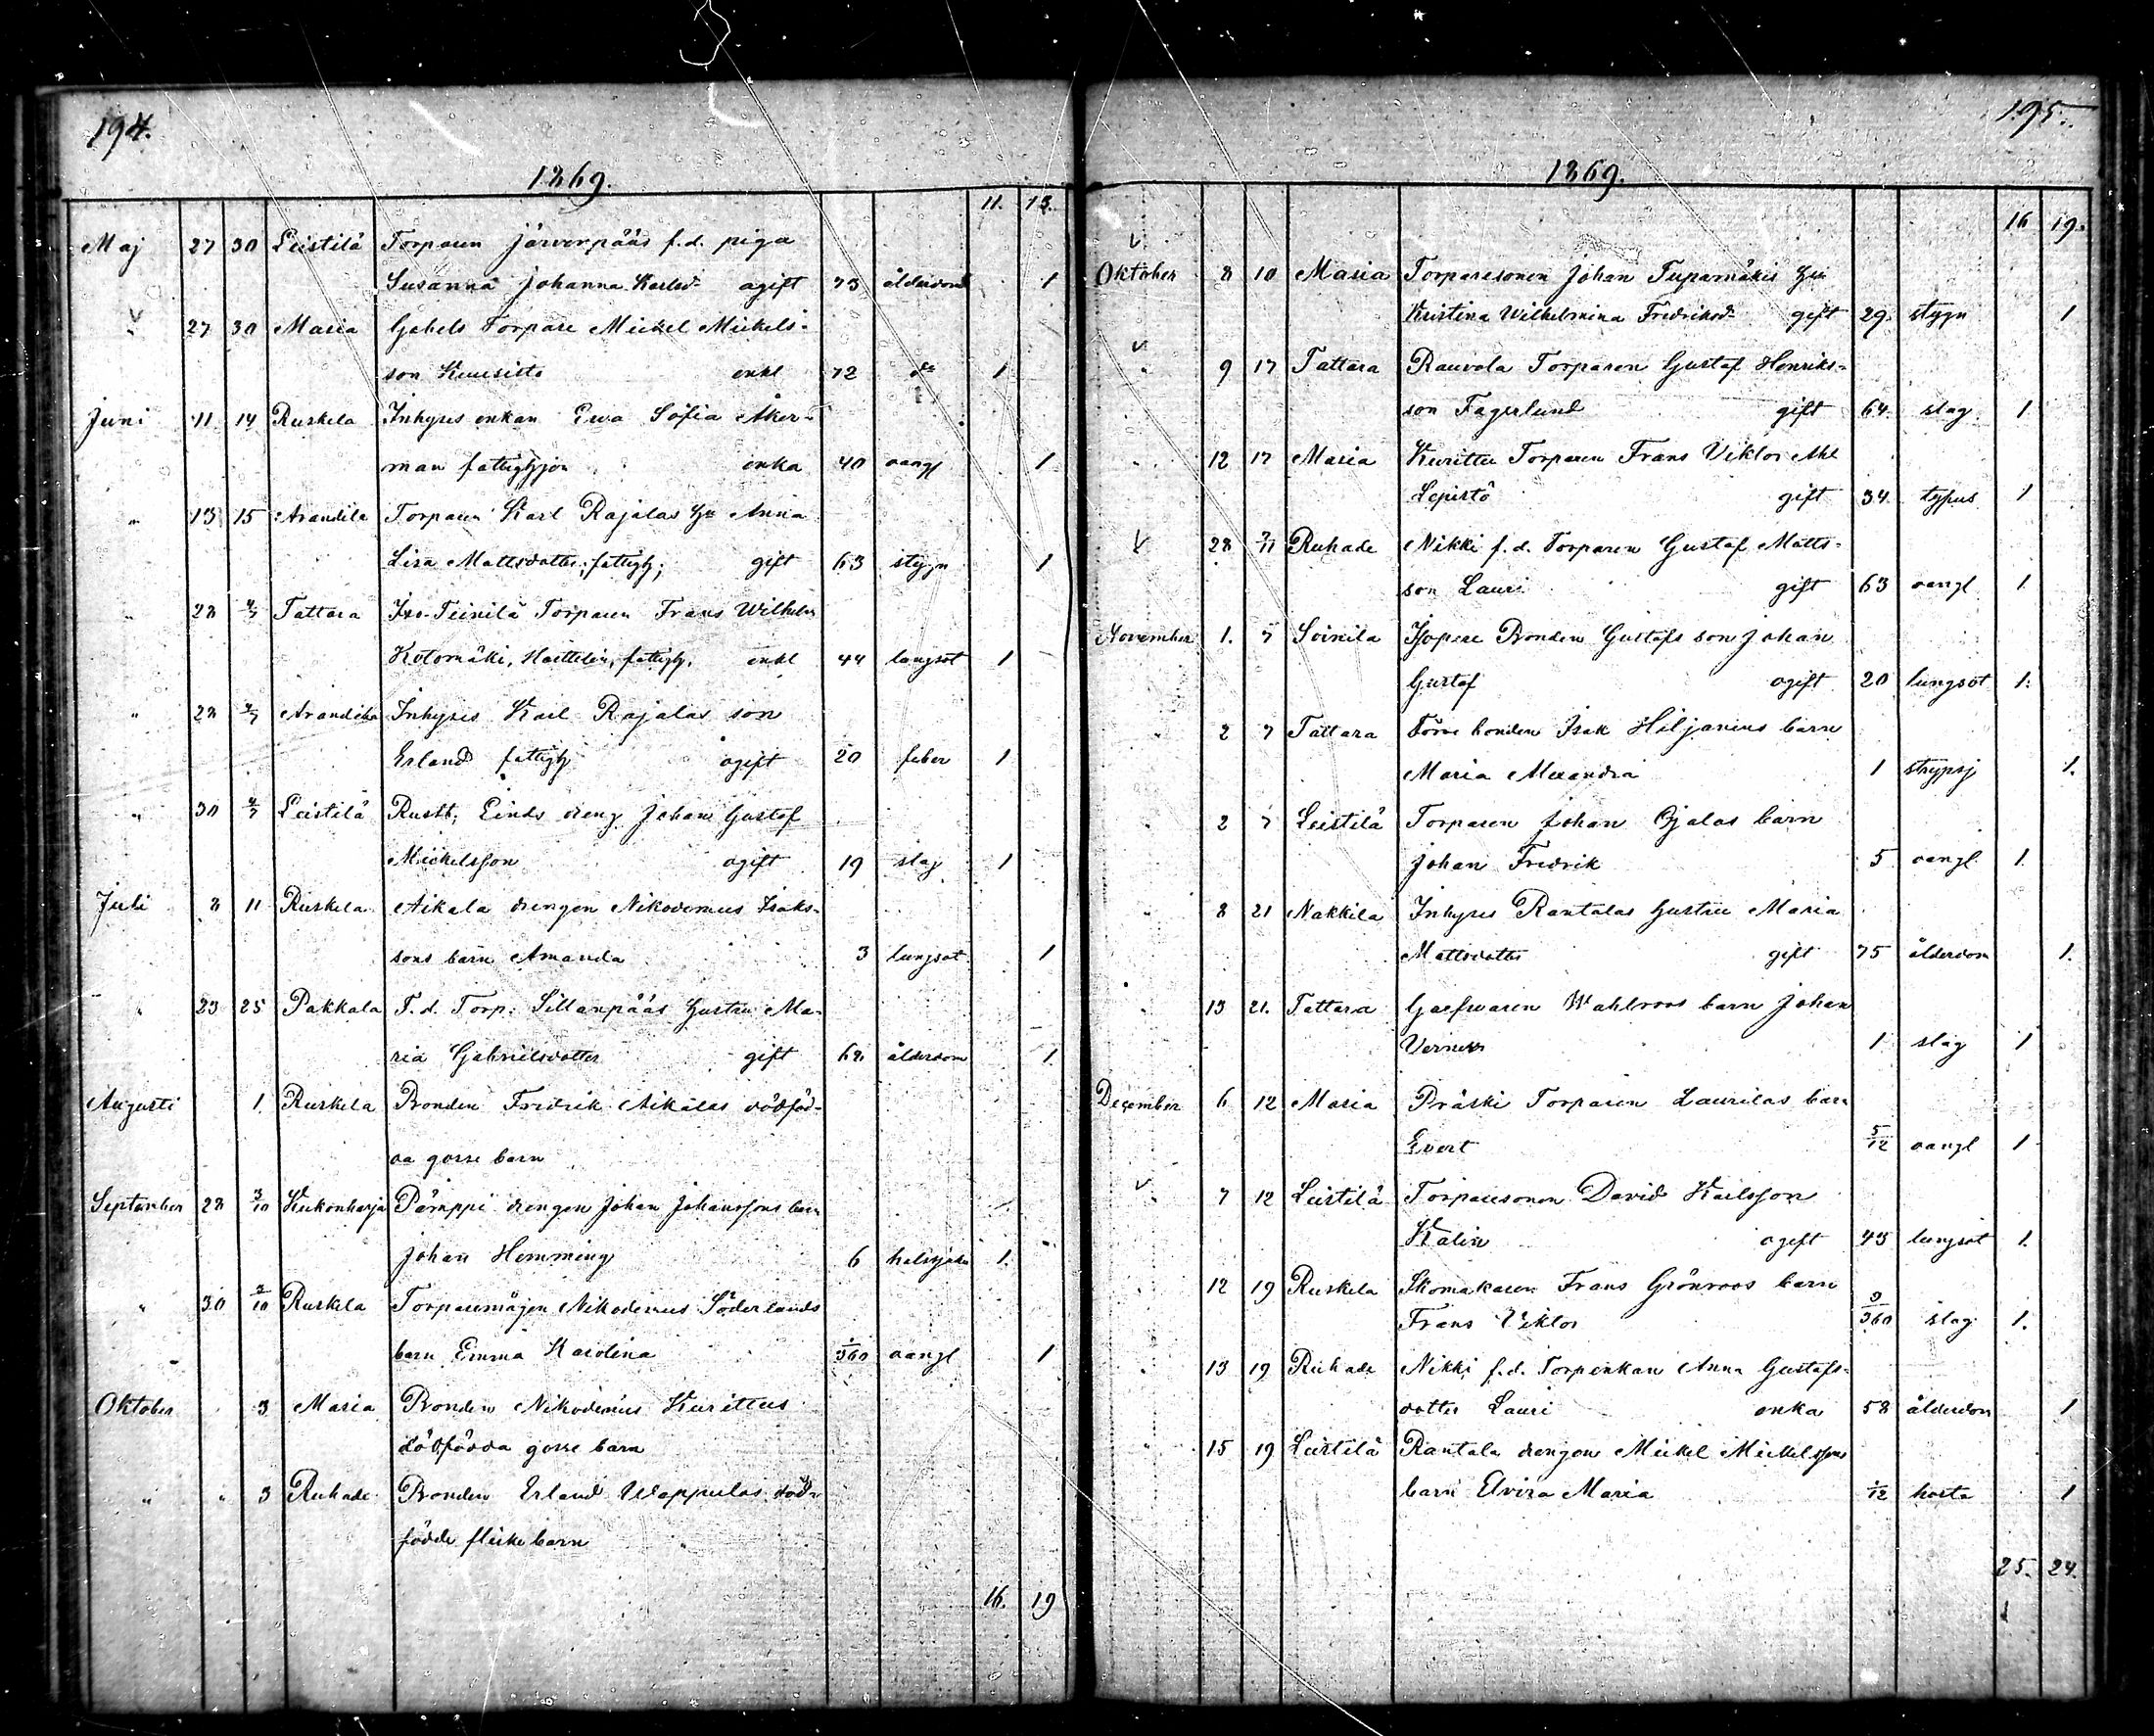 194.
1869.
11. 13.
Maj 27 30 Leistilä Torparen Järvenpääs f.d. piga
Susanna Johanna Karlsd. ogift 73 ålderdom 1
" 27 30 Maria Gabels Torpare Mickel Mickels-
son Kuusisto enkl 72 do 1
Juni 11 14 Ruskela Inhyses enkan Ewa Sofia Åker-
man fattighjon enka 40 oangf 1
" 13 15 Arandila Torparen Karl Rajalas Hu Anna
Lisa Mattsdotter, fattigh; gift 63 stygn 1
" 28 4/7 Tattara Iso-Teinilä Torparen Frans Wilhelm
Kotomäki, fattigh. enkl 44 lungsot 1
" 28 4/7 Arandila Inhyses Karl Rajalas son
Erland fattigh ogift 20 feber 1
" 30 4/7 Leistilä Rustb; Einds dreng Johan Gustaf
Mickelsson ogift 19 slag 1
Juli 8 11 Ruskela Aikala drengen Nikodemus Isaks-
sons barn Amanda 3 lungsot 1
" 23 25 Pakkala F.d. Torp. Sillanpääs hustru Ma-
ria Gabrielsdotter gift 68 ålderdom 1
Augusti 1 Ruskela Bonden Fredrik Aikalas dödföd-
da gosse barn
September 28 3/10 Kukonharja Pämppi drengen Johan Johanssons barn
Johan Hemming 6 halssjuka 1.
" 30 3/10 Ruskela Torparemågen Nikodemus Söderlunds
barn Emma Karolina 1/360 oangf 1
Oktober 3 Maria Bonden Nikodemus Kurittus
dödfödda gosse barn
" " 3 Ruhade Bonden Erland Wappulas död-
födde flicke barn
16. 19
195.
1869.
16 19.
Oktober 8 10 Maria Torparesonen Johan Tupamäkis Hu
Kristina Wilhelmina Fredriksd. gift 29. stygn 1
" 9 17 Tattara Rauvola Torparen Gustaf Henriks-
son Fagerlund gift 64 slag 1.
" 12 17 Maria Kurittu Torparen Frans Viktor
Lepistö gift 34 typus 1
" 28 7/11 Ruhade Nikki f.d. Torparen Gustaf Matts-
son Lauri gift 63 oangf 1
November 1. 7 Soinila Bonden Gustafs son Johan
Gustaf ogift 20 lungsot 1.
" 2 7 Tattara bonden Isak Hiljanens barn
Maria Alexandra 1 strypsj 1.
" 2 7 Leistilä Torparen Johan Ojalas barn
Johan Fredrik 5 oangf 1.
" 8 21 Nakkila Inhyses Rantalas hustru Maria
Mattsdotter gift 75 ålderdom 1.
" 13 21. Tattara Garfwaren Wahlroos barn Johan
Verner 1 slag 1
December 6 12 Maria Präski Torparen Laurilas barn
Evert 5/12 oangf 1
" 7 12 Leistilä Torparesonen David Karlsson
Kalin ogift 43 lungsot 1.
" 12 19 Ruskela Skomakaren Frans Grönroos barn
Frans Viktor 9/360 slag 1.
" 13 19 Ruhade Nikki f.d. Torpenkan Anna Gustafs-
dotter Lauri enka 58 ålderdom 1
" 15 19 Leistilä Rantala drengen Mickel Mickelssons
barn Elvira Maria 1/12 hosta 1
25. 24.